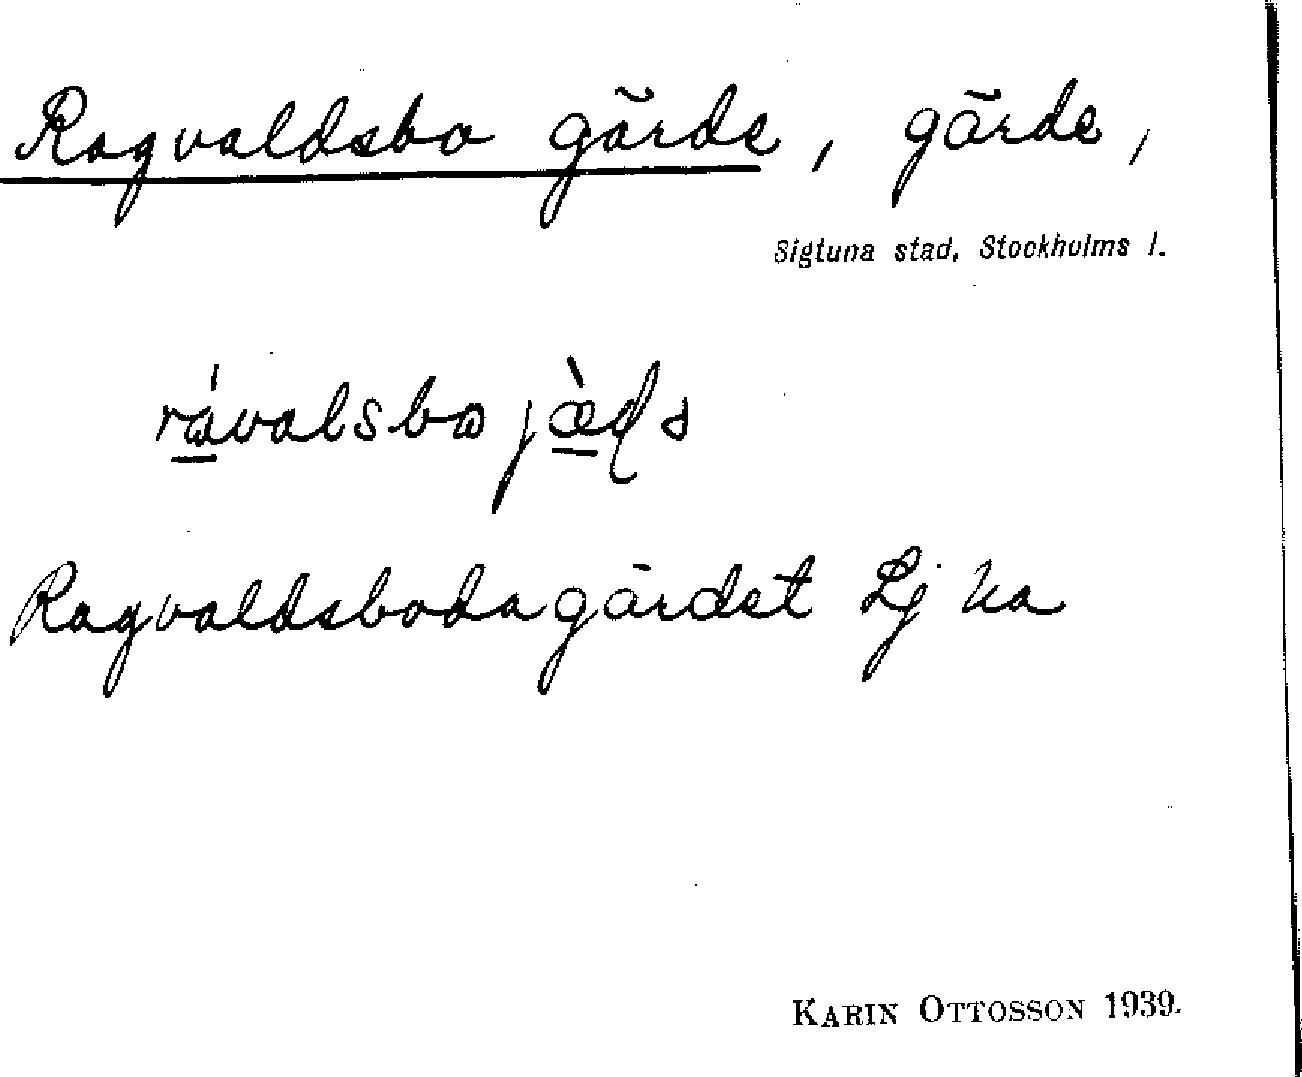 Ragvaldsbo gärde, gärde,
Sigtuna stad, Stockholms l.
Ragvaldsbodagärdet Lj ka
KARIN OTTOSSON 1939.